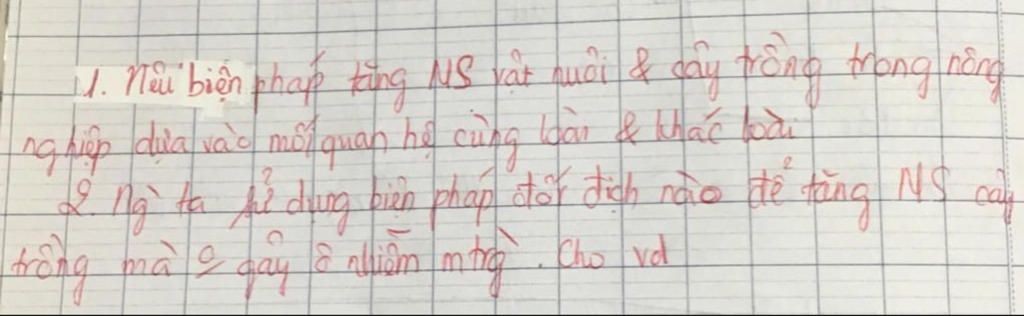 1. Nêu biện pháp tăng NS vật nuôi & cây trồng trong nông
nghiệp dựa vào mối quan hệ cùng loài & khác loài
2. Ng` ta sử dụng biện pháp đối địch nào để tăng NS cây
trồng mà o gây ô nhiễm mtrg`. Cho vd